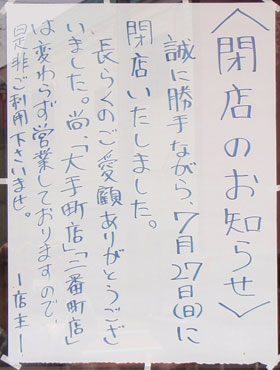 〈閉店のお知らせ〉
誠に勝手ながら、7月27日(日)に
閉店いたしました。
長らくのご愛顧ありがとうござ
いました。尚、「大手町店」「二番町店」
は変わらず営業しておりますので、
是非ご利用下さいませ。
ー店主ー